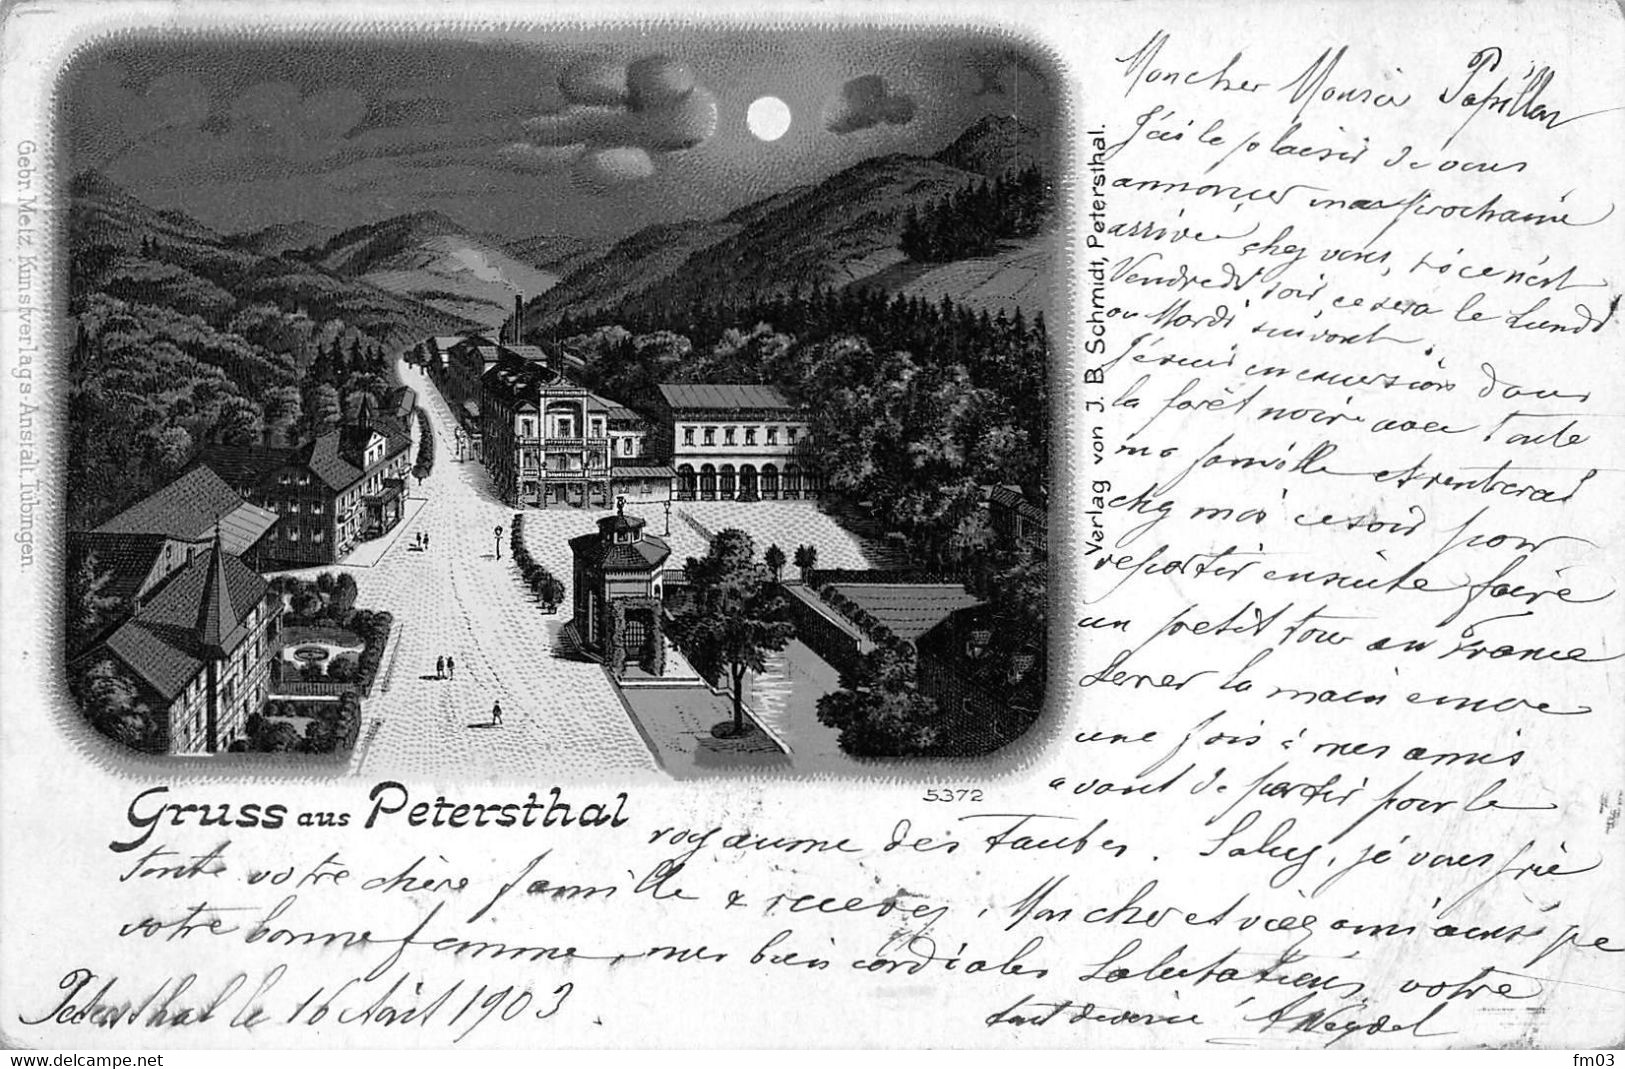 Mon cher Monsieur Papillon
J'ai le plaisir de vous
annoncer ma prochaine
arrivée chez vous, si ce n'est
Vendredi soir ce sera le Lundi
ou Mardi suivant.
Je suis en excursion dans
la forêt noire avec toute
ma famille et rentrerai
chez moi ce soir pour
repartir ensuite faire
un petit tour en France
Serrer la main encore
une fois à mes amis
avant de partir pour le
royaume des Taubes. Saluez, je vous prie
toute votre chère famille & recevez, Mon cher et vieil ami ainsi que
votre bonne femme, mes bien cordiales Salutations, votre
tout dévoué
Petersthal le 16 Août 1903.
Gruss aus Petersthal
5372
Verlag von J. B. Schmidt, Petersthal.
Gebr. Metz, Kunstverlags-Anstalt, Tübingen.
https://www.delcampe.net
fm03